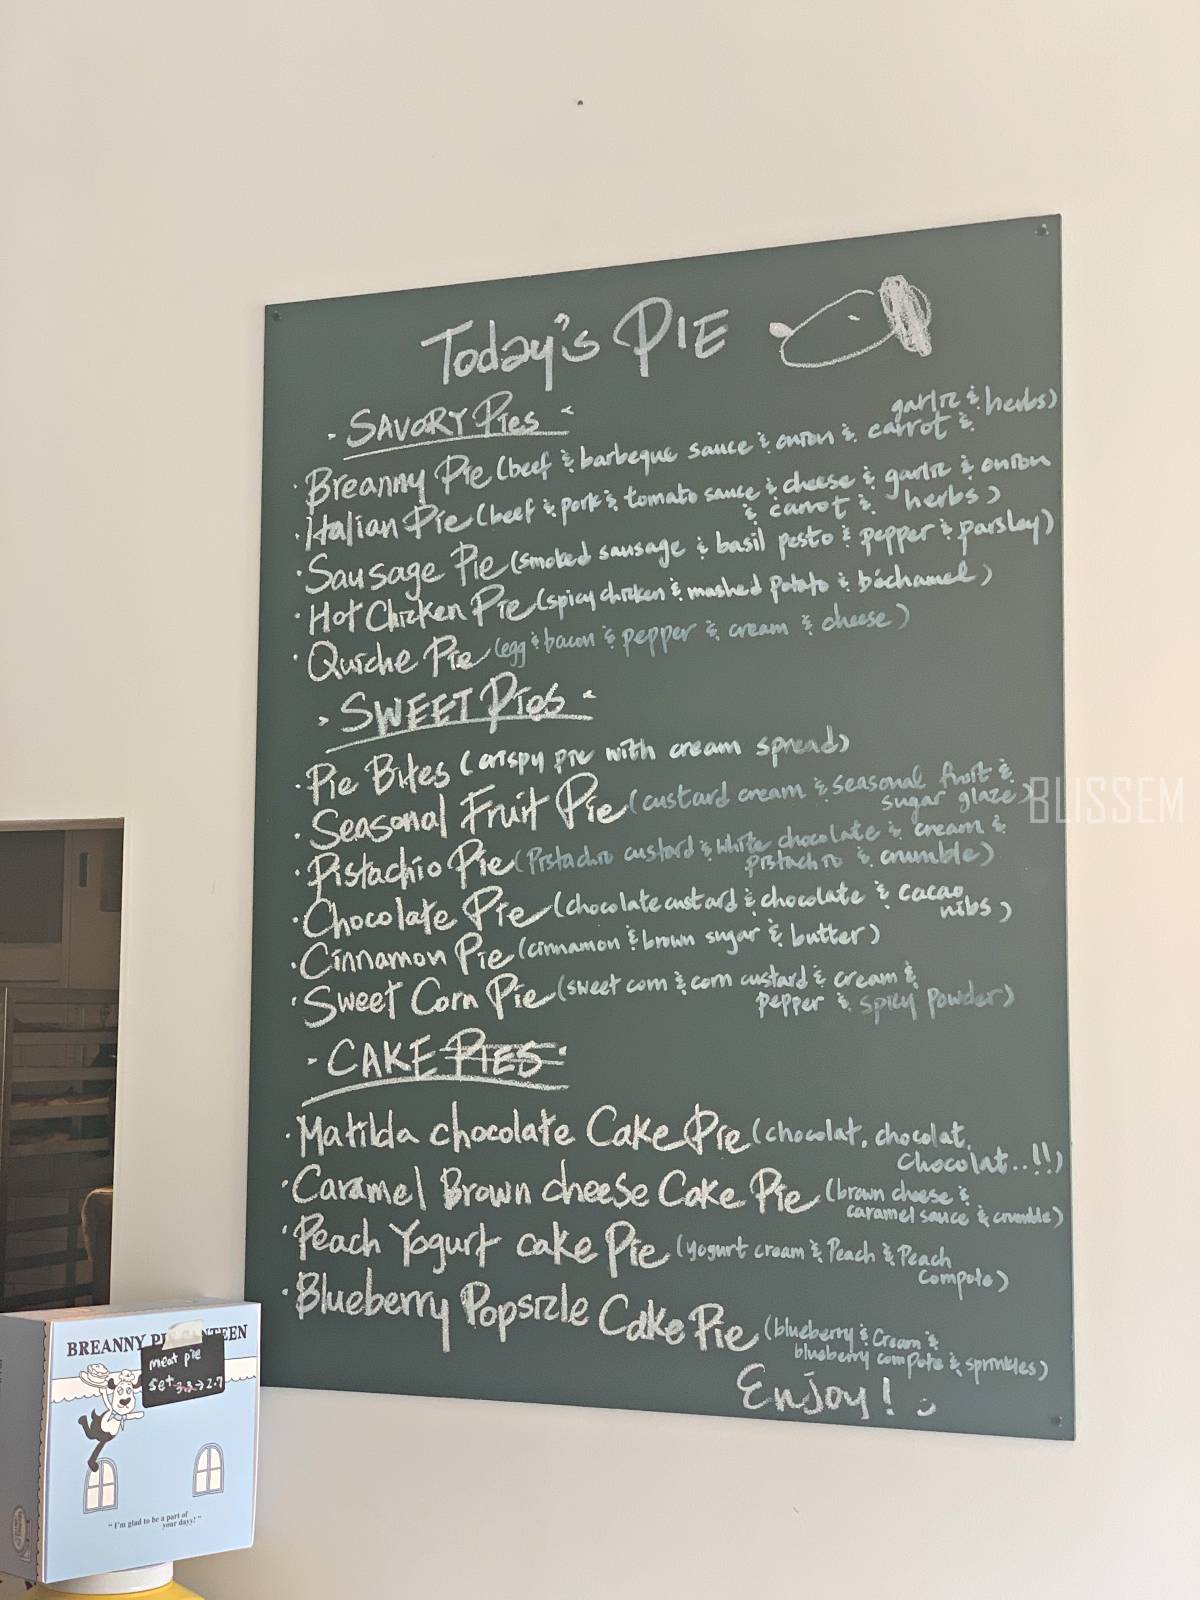 Today's PIE
- SAVORY Pies -
· Breanny Pie (beef & barbeque sauce & onion & carrot &
garlic & herbs)
· Italian Pie (beef & pork & tomato sauce & cheese & garlic & onion
& carrot & herbs)
· Sausage Pie (smoked sausage & basil pesto & pepper & parsley)
· Hot Chicken Pie (spicy chicken & mashed potato & béchamel)
· Quiche Pie (egg & bacon & pepper & cream & cheese)
- SWEET Pies -
· Pie Bites (crispy pie with cream spread)
· Seasonal Fruit Pie (custard cream & seasonal fruit &
sugar glaze)
BLISSEM
· Pistachio Pie (Pistachio custard & white chocolate & cream &
pistachio & crumble)
· Chocolate Pie (chocolate custard & chocolate & cacao
nibs)
· Cinnamon Pie (cinnamon & brown sugar & butter)
· Sweet Corn Pie (sweet corn & corn custard & cream &
pepper & spicy powder)
- CAKE PIES -
· Matilda chocolate Cake Pie (chocolat, chocolat,
chocolat..!!)
· Caramel Brown cheese Cake Pie (brown cheese &
caramel sauce & crumble)
· Peach Yogurt cake Pie (yogurt cream & Peach & Peach
compote)
· Blueberry Popsicle Cake Pie (blueberry & Cream &
blueberry compote & sprinkles)
Enjoy! :)
BREANNY PIE CANTEEN
meat pie
set 3.3→2.7
"I'm glad to be a part of
your days!"